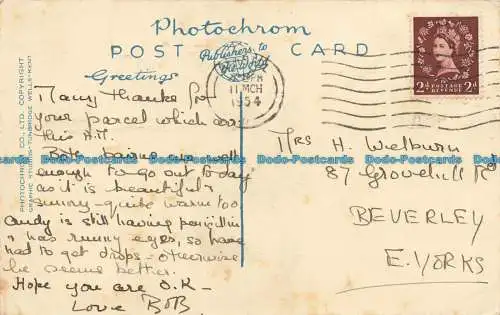 Photochrom
POST CARD
Publishers to
the World
Greetings
11 MCH
1954
2D POSTAGE REVENUE 2D
PHOTOCHROM CO., LTD. COPYRIGHT
GRAPHIC STUDIOS-TUNBRIDGE WELLS-KENT
Many thanks for
your parcel which
this A.M.
Both well
enough to go out today
as it is beautiful &
sunny - quite warm too
Candy is still having penicillin
& has runny eyes, so have
had to get drops - otherwise
he seems better.
Hope you are O.K -
Love BOB
Mrs H. Welburn
87 Grovehill Rd
BEVERLEY
E. YORKS
Dodo-Postcards Dodo-Postcards Dodo-Postcards Dodo-Postcards Dodo-Postcards